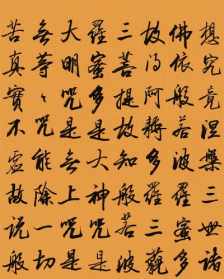 想究竟涅槃三世諸
佛依般若波羅蜜多
故得阿耨多羅三藐
三菩提故知般若波
羅蜜多是大神咒是
大明咒是無上咒是
無等々咒能除一切
苦真實不虛故說般